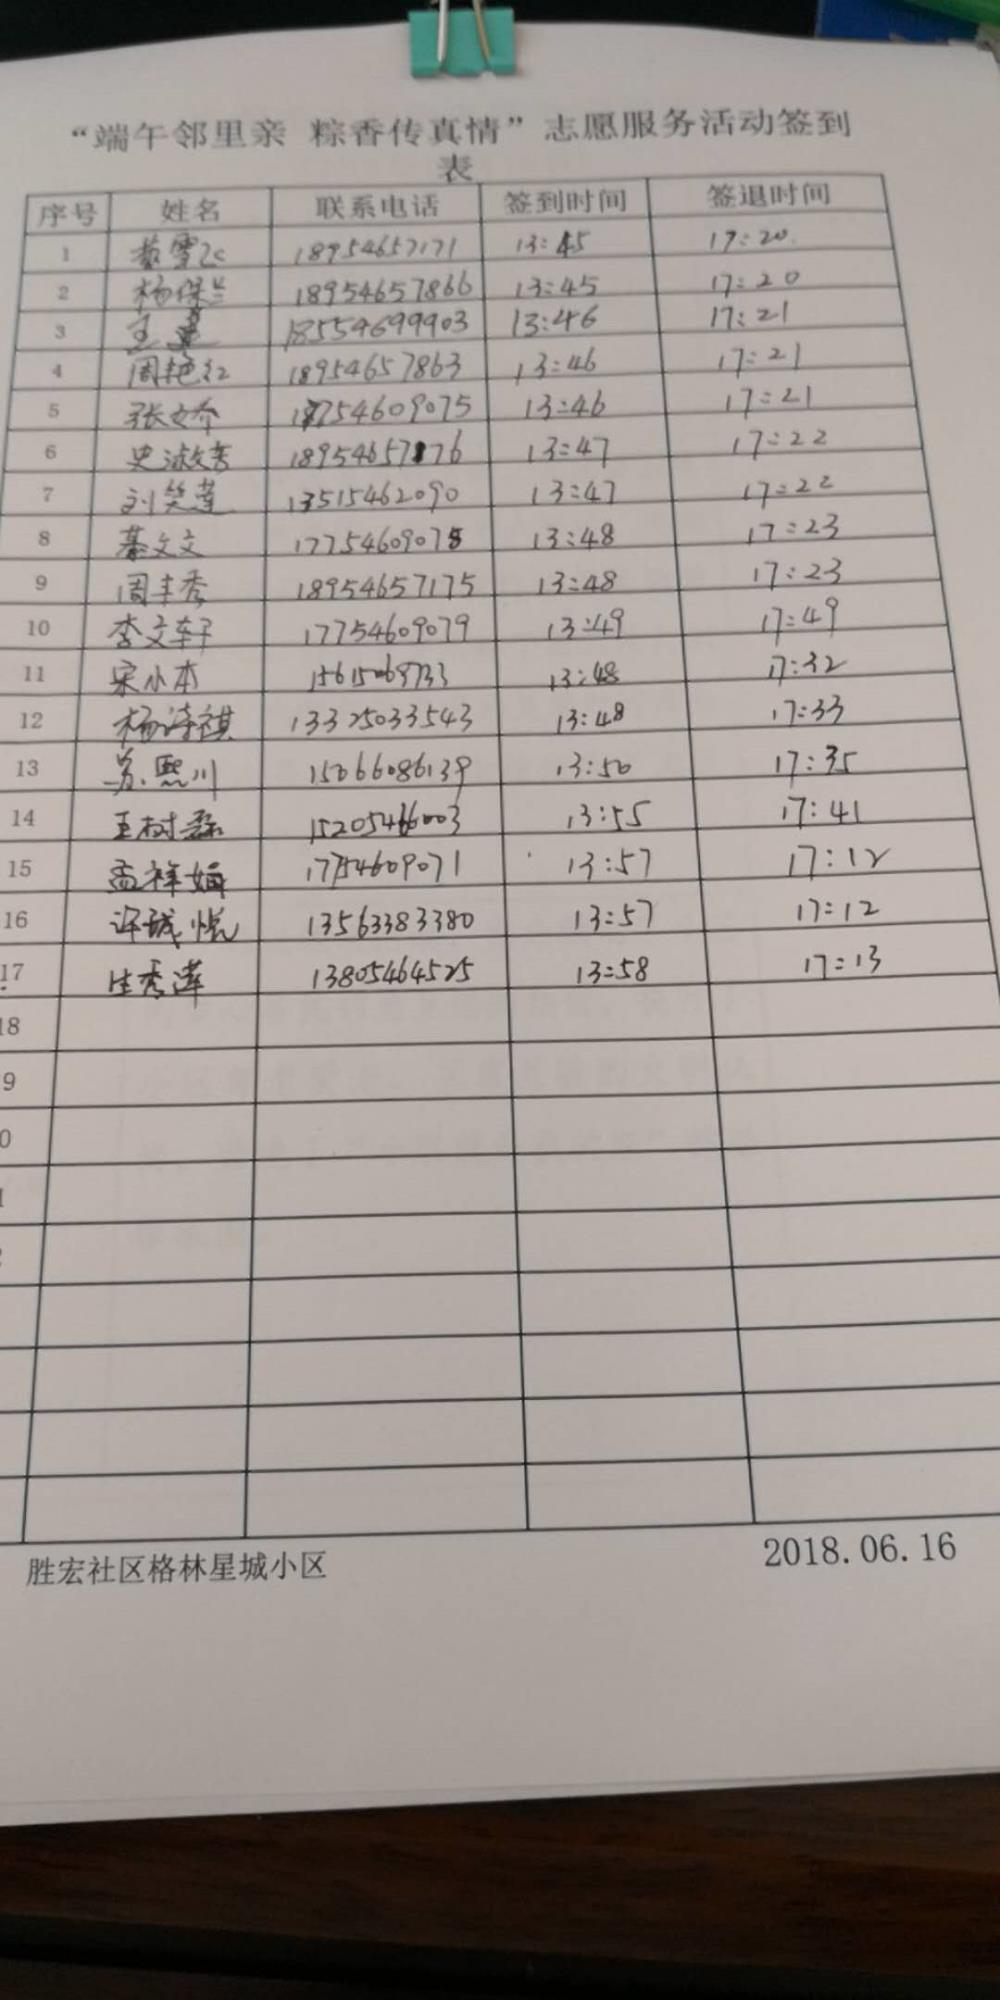 “端午邻里亲 粽香传真情”志愿服务活动签到
表
序号 姓名 联系电话 签到时间 签退时间
1 18954657171 13:45 17:20
2 杨保兰 18954657866 13:45 17:20
3 王 18554699903 13:46 17:21
4 周艳红 18954657863 13:46 17:21
5 张文乔 17754609075 13:46 17:21
6 史淑芳 18954657176 13:47 17:22
7 刘笑莲 13515462090 13:47 17:22
8 綦文文 17754609078 13:48 17:23
9 周丰秀 18954657175 13:48 17:23
10 李文轩 17754609079 13:49 17:49
11 宋小本 15615069733 13:48 17:32
12 杨诗祺 13325033543 13:48 17:33
13 苏熙川 15066086139 13:50 17:35
14 王树磊 15205466003 13:55 17:41
15 孟祥娟 17754609071 13:57 17:12
16 许诚悦 13563383380 13:57 17:12
17 生秀莲 13805464525 13:58 17:13
18
9
0
胜宏社区格林星城小区 2018.06.16